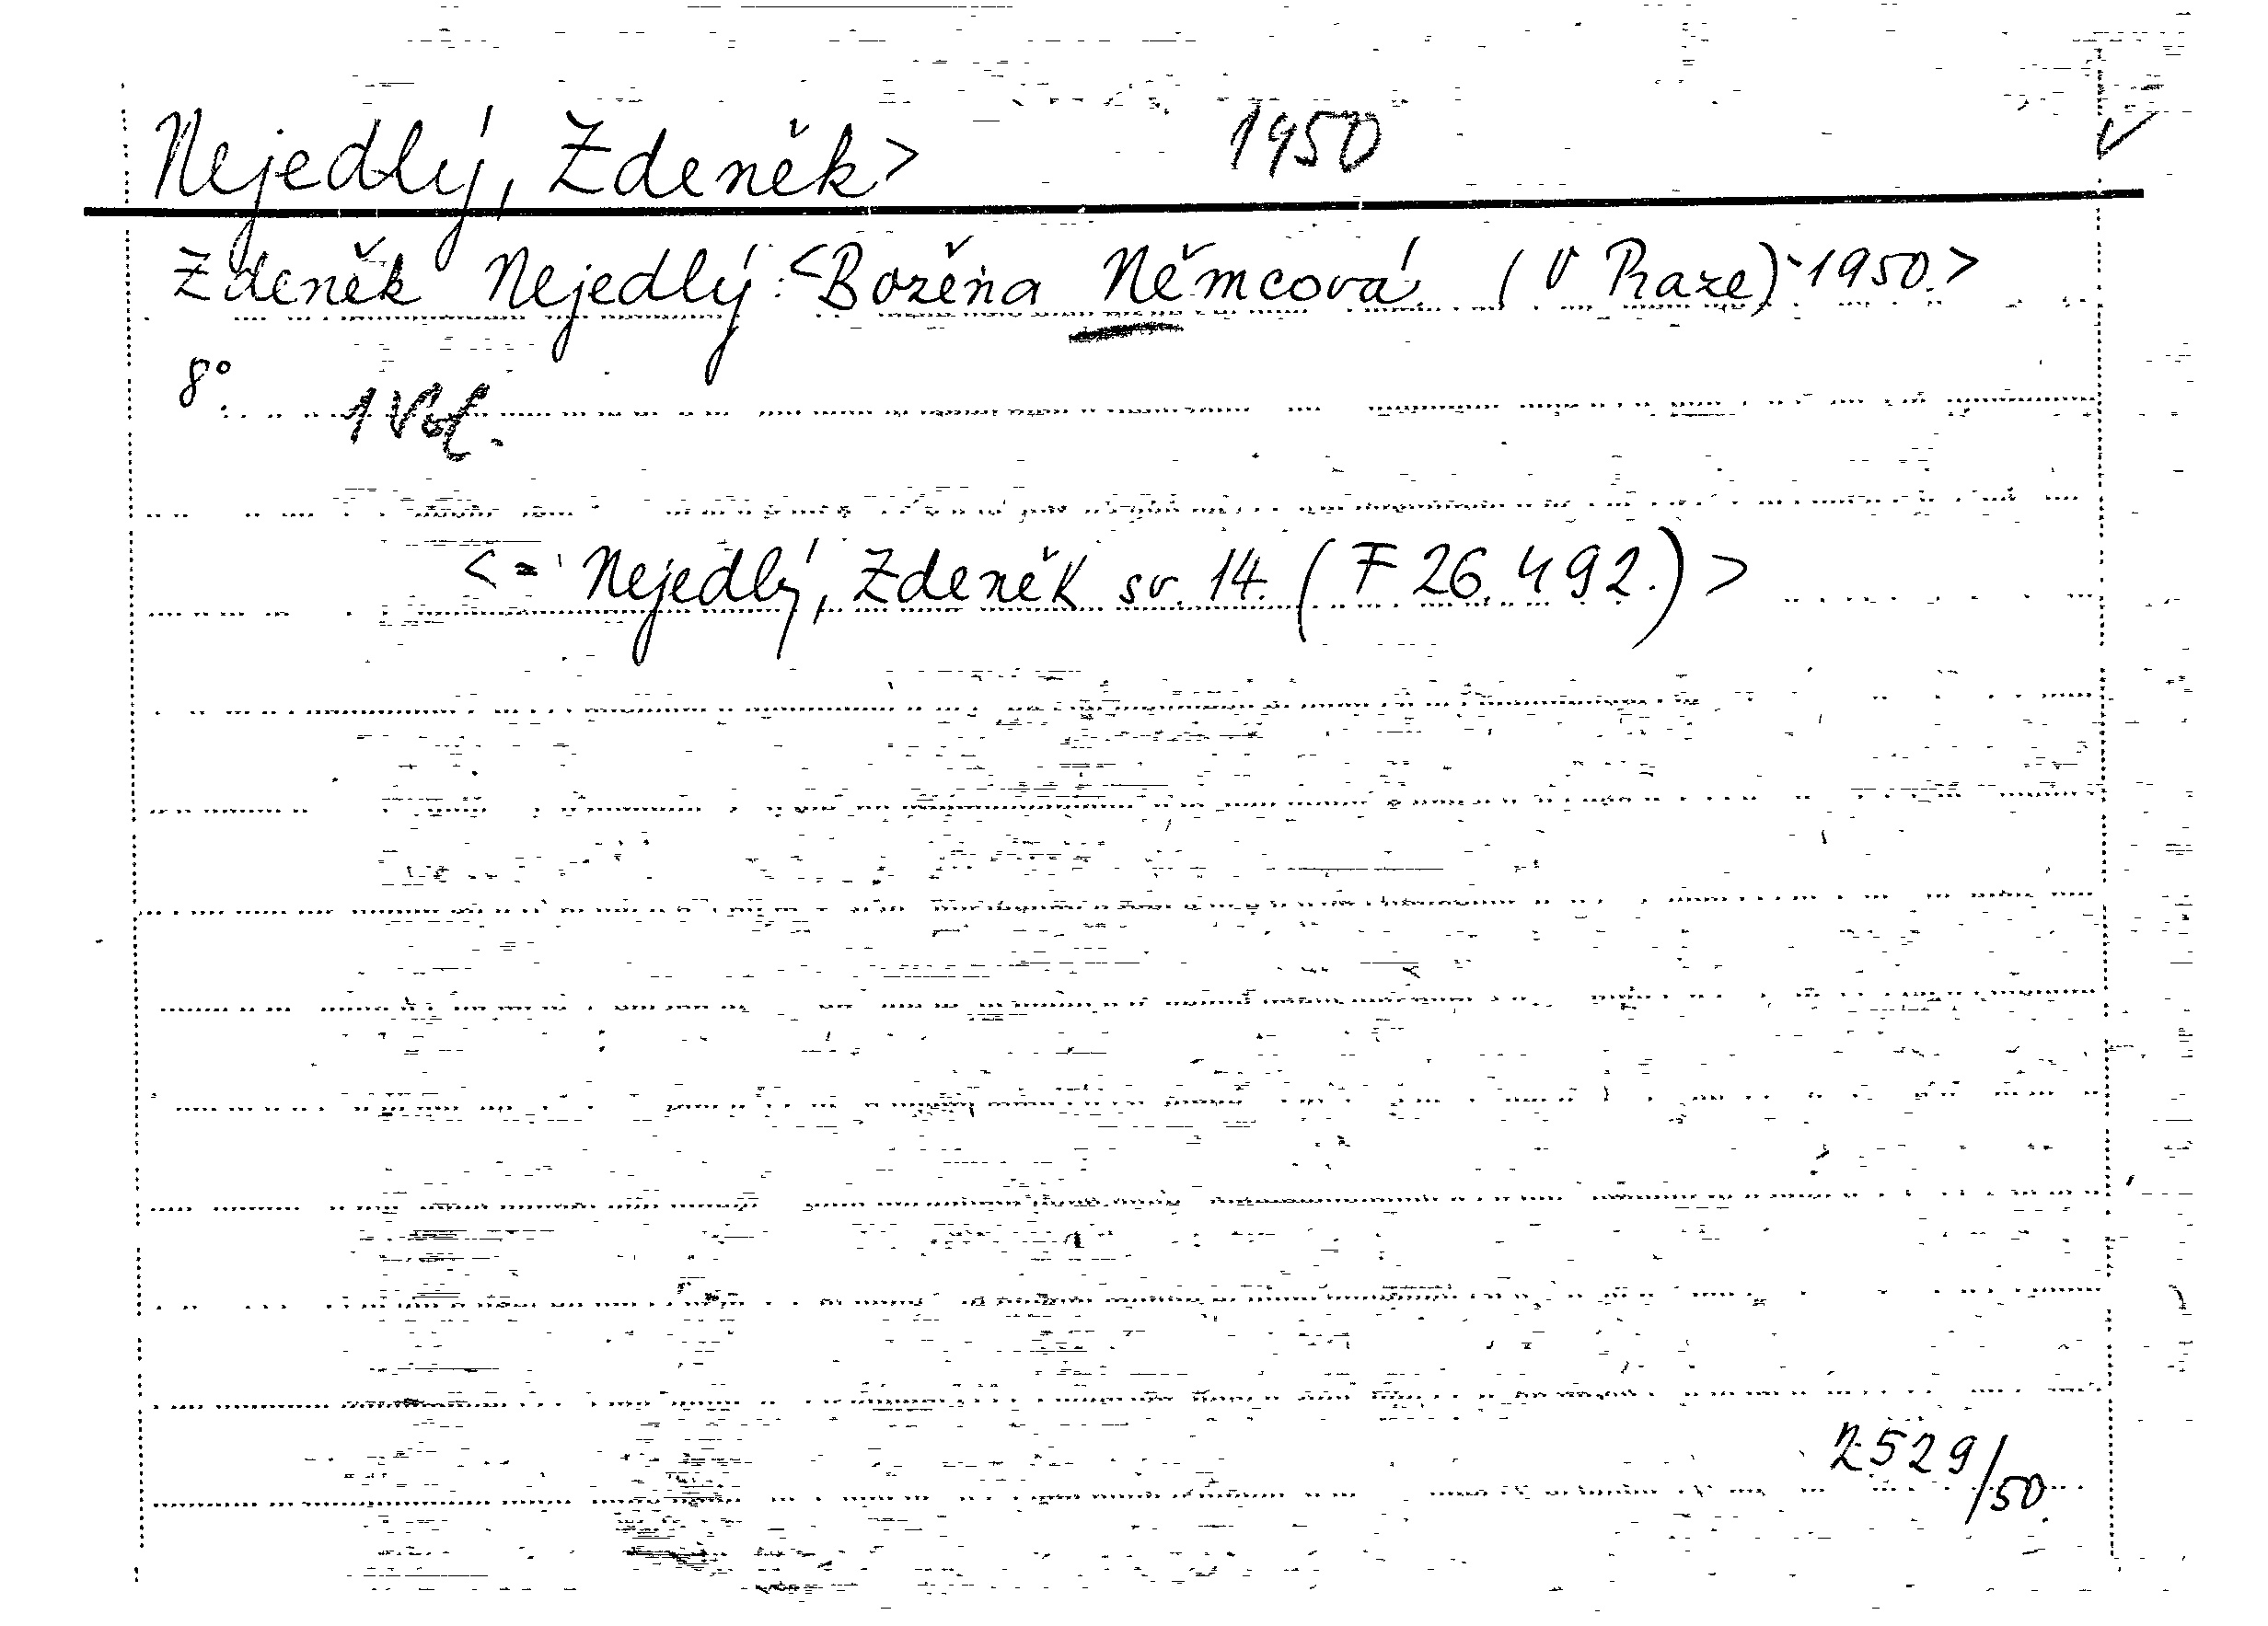 Nejedlý, Zdeněk> 1950 ✓
Zdeněk Nejedlý: <Božena Němcová. (V Praze) 1950.>
8°. 1 Vol.
<= Nejedlý, Zdeněk sv. 14. (F 26.492.)>
2529/50.